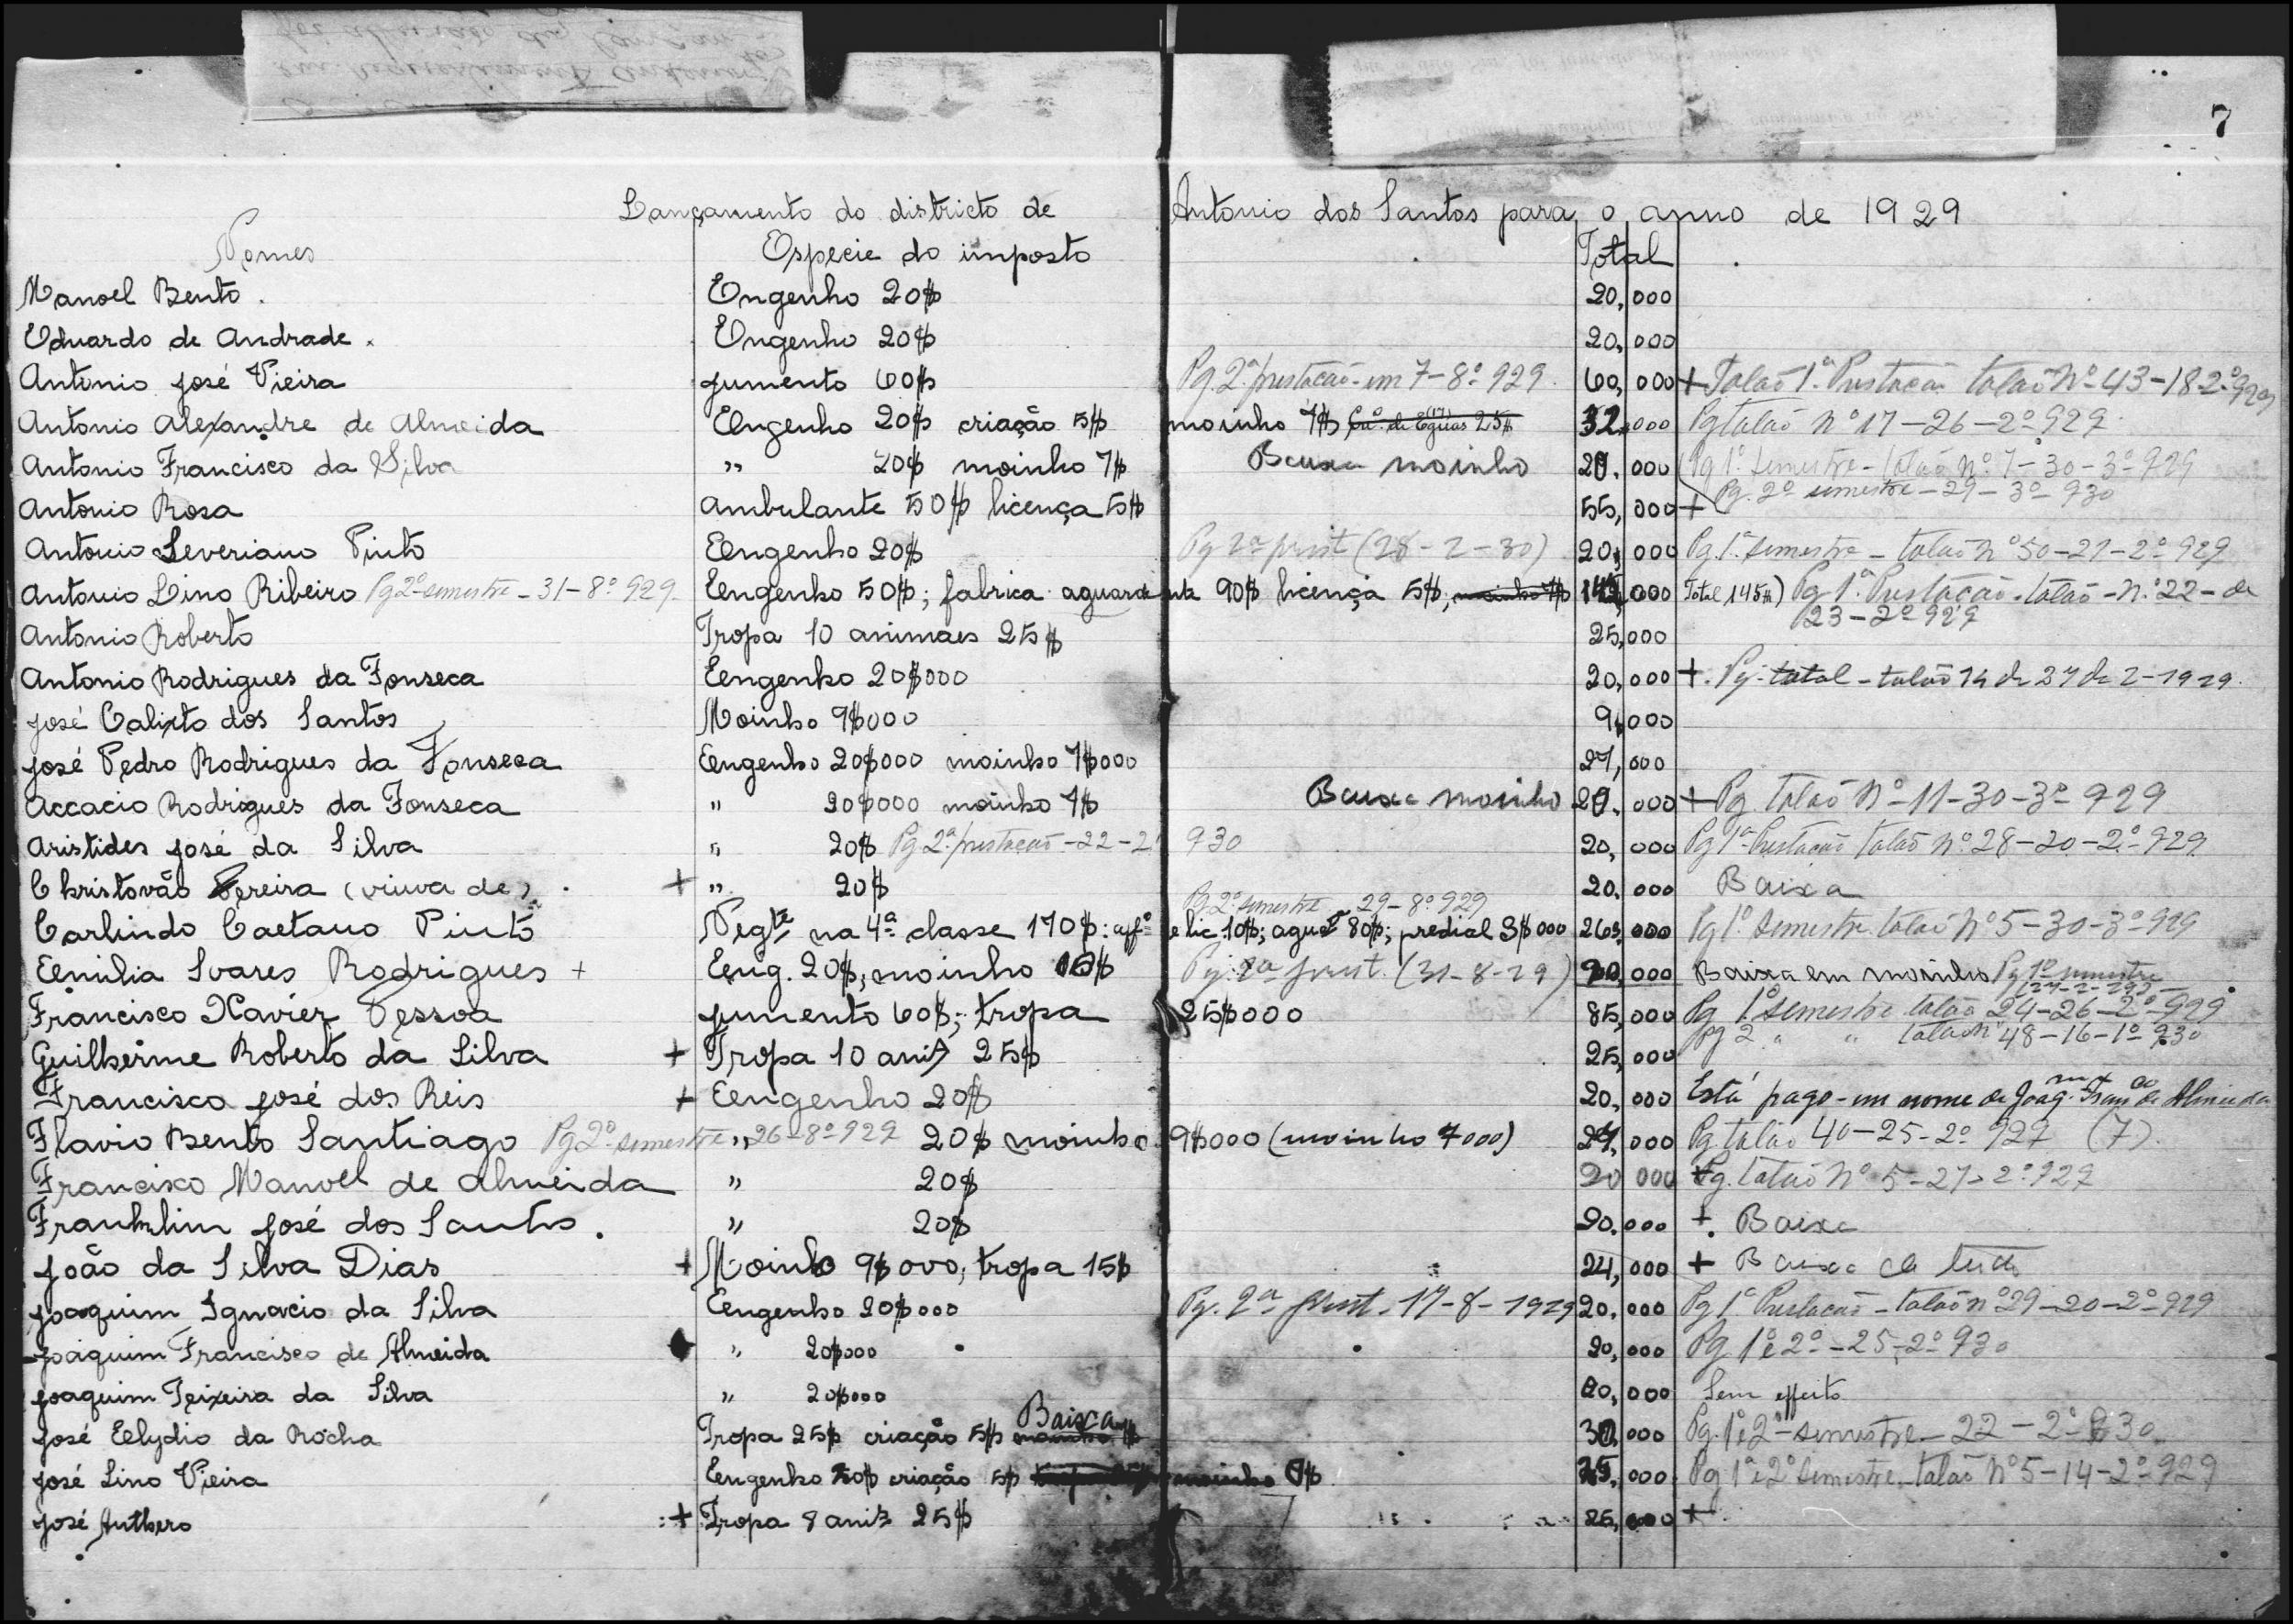 7
Lançamento do districto de Antonio dos Santos para o anno de 1929
Nomes Especie do imposto Total
Manoel Bento. Engenho 20$ 20,000
Eduardo de Andrade. Engenho 20$ 20,000
Antonio José Vieira jumento 60$ Pg. 2ª prestacão - em 7-8º 929. 60,000 + Talão 1ª Prestacão talão Nº 43-18-2º-929
Antonio Alexandre de Almeida Engenho 20$ criação 5$ moinho 7$ 32,000 Pg talão nº 17-26-2º 929
Antonio Francisco da Silva " 20$ moinho 7$ Baixa moinho 20.000 Pg 1º semestre - talão nº 7-30-3º 929
Pg. 2º semestre - 29-3º 930
Antonio Rosa Ambulante 50$ licença 5$ 55,000 +
Antonio Severiano Pinto Engenho 20$ Pg 2ª prest (28-2-30) 20,000 Pg. 1º semestre - talão nº 50-27-2º 929
Antonio Lino Ribeiro Pg 2º semestre - 31-8º 929 Engenho 50$; fabrica aguardente 90$ licença 5$, moinho 7$ 145,000 Total 145$) Pg 1ª Prestacão - talão - n. 22 - de
23-2º 929
Antonio Roberto Tropa 10 animaes 25$ 25,000
Antonio Rodrigues da Fonseca Engenho 20$000 20,000 +. Pg. total - talão 14 de 27 de 2-1929.
José Calixto dos Santos Moinho 9$000 9,000
José Pedro Rodrigues da Fonseca Engenho 20$000 moinho 7$000 27,000
Accacio Rodrigues da Fonseca " 20$000 moinho 7$ Baixa moinho 20.000 + Pg. talão Nº 11-30-3º 929
Aristides José da Silva " 20$ Pg 2ª prestacão - 22-2º 930 20,000 Pg 1ª Prestacão talão nº 28-20-2º-929
Christovão Pereira (viuva de). + " 20$ 20.000 Baixa
Pg. 2º semestre - 29-8º 929
Carlindo Caetano Pinto Negte na 4ª classe 170$: afº e lic 10$; aguate 80$; predial 3$000 263,000 Pg 1º semestre talão nº 5-30-3º 929
Emilia Soares Rodrigues + Eng. 20$; moinho 10$ Pg. 2ª prest. (31-8-29) 20,000 Baixa em moinho Pg 1º semestre
Francisco Xavier Pessoa jumento 60$; tropa 25$000 85,000 Pg 1º semestre talão 24-26-2º-929
pg 2 " " talão nº 48-16-1º 930
Guilherme Roberto da Silva + Tropa 10 anis 25$ 25,000
Francisco José dos Reis + Engenho 20$ 20,000 Está pago - em nome de Joaqm Franco de Almeida
Flavio Bento Santiago Pg 2º semestre 26-8º-929 " 20$ moinho 9$000 (moinho 7000) 27,000 Pg. talão 40-25-2º 929 (7).
Francisco Manoel de Almeida " 20$ 20 000 + Pg. talão Nº 5-27-2º 929
Franklim José dos Santos. " 20$ 20.000 + Baixa
João da Silva Dias + Moinho 9$000; tropa 15$ 24,000 + Baixa de tudo
Joaquim Ignacio da Silva Engenho 20$000 Pg. 2ª prest. 17-8-1929 20,000 Pg 1ª Prestacão - talão nº 29-20-2º-929
Joaquim Francisco de Almeida " 20$000 20,000 Pg 1º e 2º - 25-2º 930
Joaquim Teixeira da Silva " 20$000 20,000 Sem effeito
José Elydio da Rocha Tropa 25$ criação 5$ moinho Baixa 30,000 Pg. 1º e 2º - semestre - 22-2º 930
José Lino Vieira Engenho 20$ criação 5$ moinho 25,000 Pg 1º e 2º semestre - talão Nº 5-14-2º-929
José Anthero + Tropa 8 anis 25$ 25,000 +